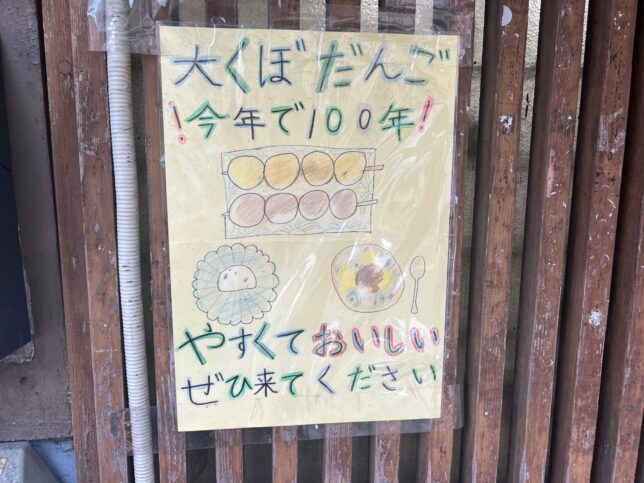 大くぼだんご
!今年で100年!
やすくておいしい
ぜひ来てください